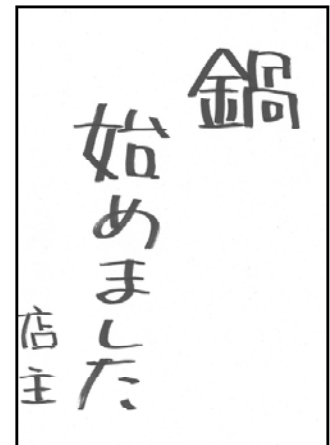 鍋
始めました
店主